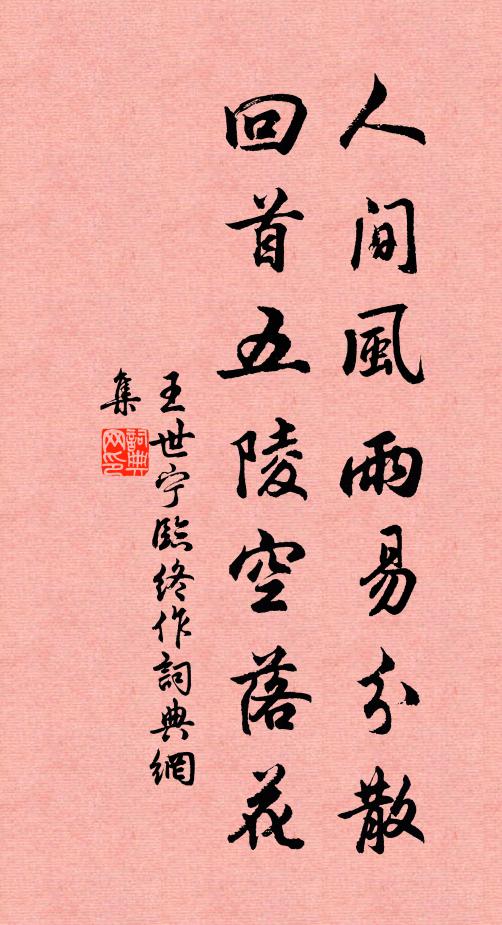 人間風雨易分散
回首五陵空落花
王世宁臨終作詞典網
集
詞典
网印